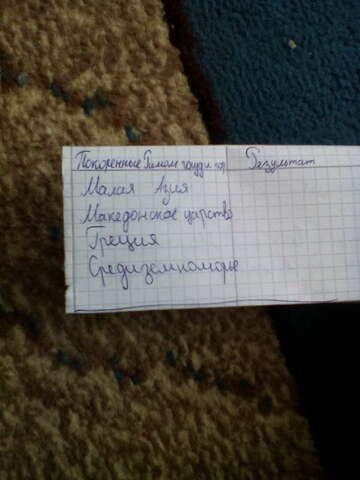 Покоренные Римом государ Результат
Малая Азия
Македонское царство
Греция
Средиземноморье